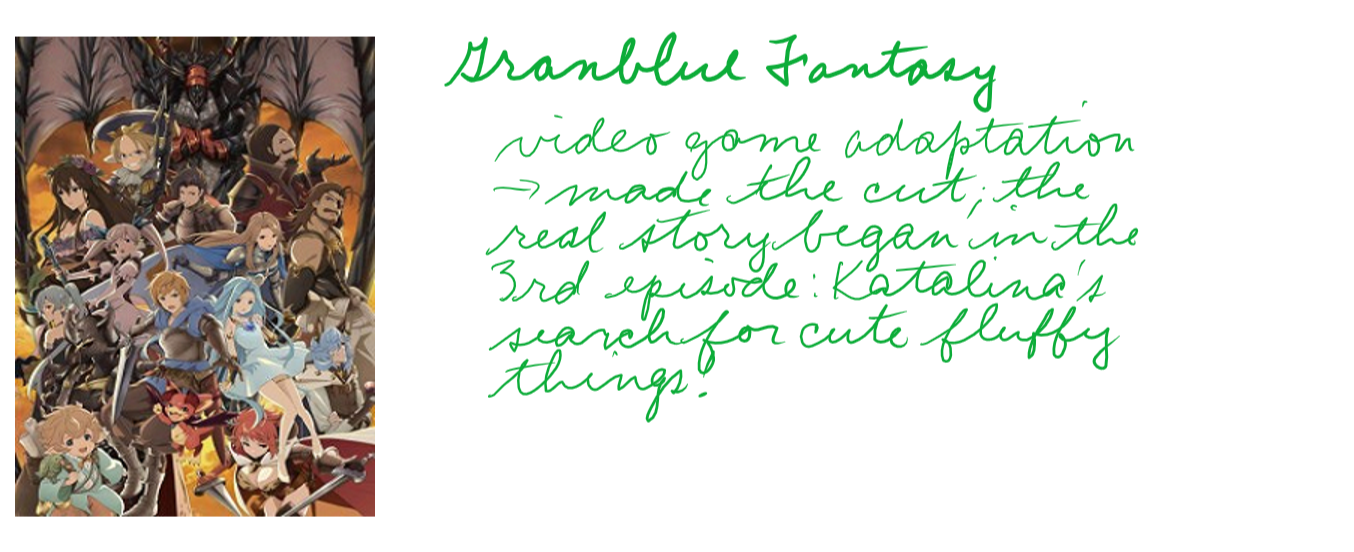 Granblue Fantasy
video game adaptation
→ made the cut; the
real story began in the
3rd episode: Katalina's
search for cute fluffy
things!